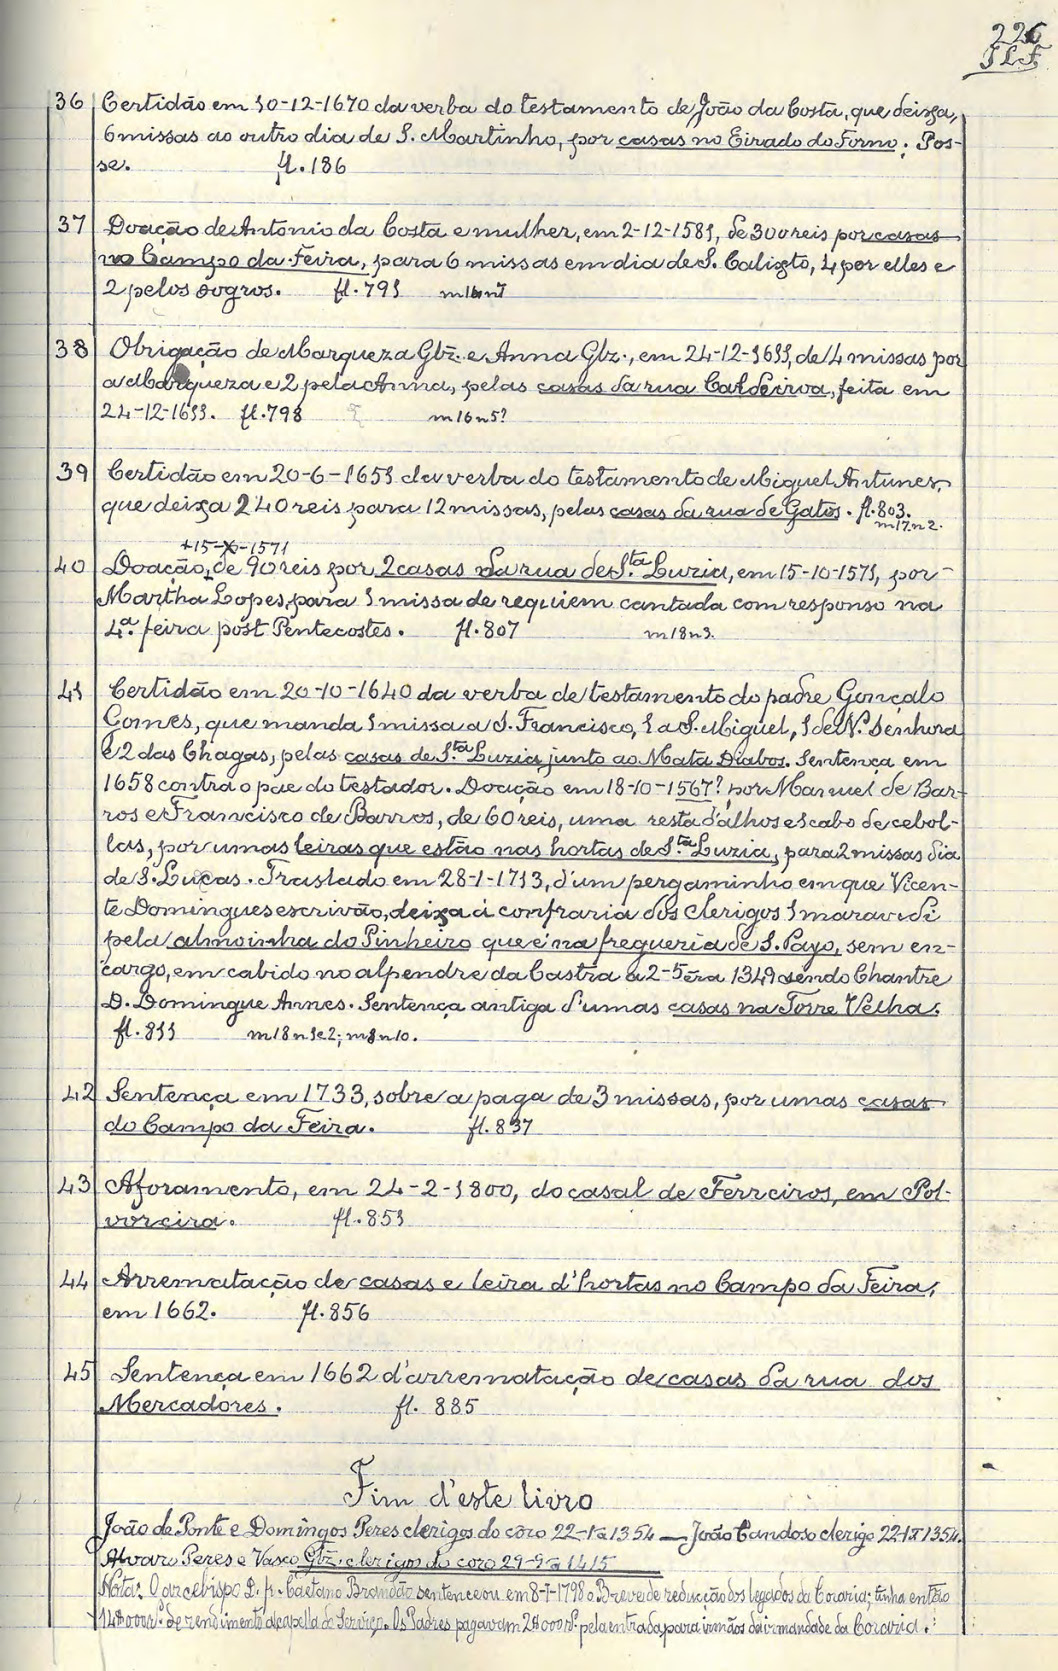 226
36 Certidão em 10-12-1670 da verba do testamento de João da Costa, que deixa,
6 missas ao outro dia de S. Martinho, por casas no Eirado do Forno; Pos-
se. fl. 186
37 Doação de Antonio da Costa e mulher, em 2-12-1581, de 300 reis por casas
no Campo da Feira, para 6 missas em dia de S. Calixto, 4 por elles e
2 pelos sogros. fl. 791
38 Obrigação de Marqueza Glz. e Anna Glz., em 24-12-1611, de 14 missas por
a Marqueza e 2 pela Anna, pelas casas da rua Caldeirôa, feita em
24-12-1611. fl. 798 m 16 n 5?
39 Certidão em 20-6-1651 da verba do testamento de Miguel Antunes,
que deixa 240 reis para 12 missas, pelas casas da rua de Gatos. fl. 803.
m 17 n 2.
+15-X-1571
40 Doação, de 90 reis por 2 casas da rua de S.ta Luzia, em 15-10-1571, por
Martha Lopes, para 1 missa de requiem cantada com responso na
4.ª feira post Pentecostes. fl. 807 m 18 n 3.
41 Certidão em 20-10-1640 da verba de testamento do padre Gonçalo
Gomes, que manda 1 missa a S. Francisco, 1 a S. Miguel, 1 de N. Senhora
e 2 das Chagas, pelas casas de S.ta Luzia, junto ao Mata Diabos. Sentença em
1658 contra o pae do testador. Doação em 18-10-1567? por Manuel de Bar-
ros e Francisco de Barros, de 60 reis, uma resta d'alhos e 1 cabo de cebol-
las, por umas leiras que estão nas hortas de S.ta Luzia, para 2 missas dia
de S. Lucas. Traslado em 28-1-1713, d'um pergaminho em que Vicen-
te Domingues escrivão, deixa á confraria dos clerigos 1 maravidi
pela almoinha do Pinheiro que é na fregueria de S. Payo, sem en-
cargo, em cabido no alpendre da Castra a 2-5 era 1349 sendo Chantre
D. Domingue Annes. Sentença antiga d'umas casas na Torre Velha.
fl. 811 m 18 n 1 e 2; m 8 n 10.
42 Sentença em 1733, sobre a paga de 3 missas, por umas casas
do Campo da Feira. fl. 837
43 Aforamento, em 24-2-1800, do casal de Ferreiros, em Pol-
voreira. fl. 851
44 Arrematação de casas e leira d'hortas no Campo da Feira,
em 1662. fl. 856
45 Sentença em 1662 d'arrematação de casas da rua dos
Mercadores. fl. 885
Fim d'este livro
João de Ponte e Domingos Peres clerigos do côro 22-1ª 1354 — João Candoso clerigo 22-1ª 1354.
Alvaro Peres e Vasco Glz. clerigos do coro 29-9ª 1415
Nota: O arcebispo D. fr. Caetano Brandão sentenceou em 8-7-1798 o Breve de reducção dos legados da Coraria; tinha então
148000 rs. de rendimento a capella do Serviço. Os Padres pagavam 28000 rs. pela entrada, para irmãos da irmandade da Coraria.